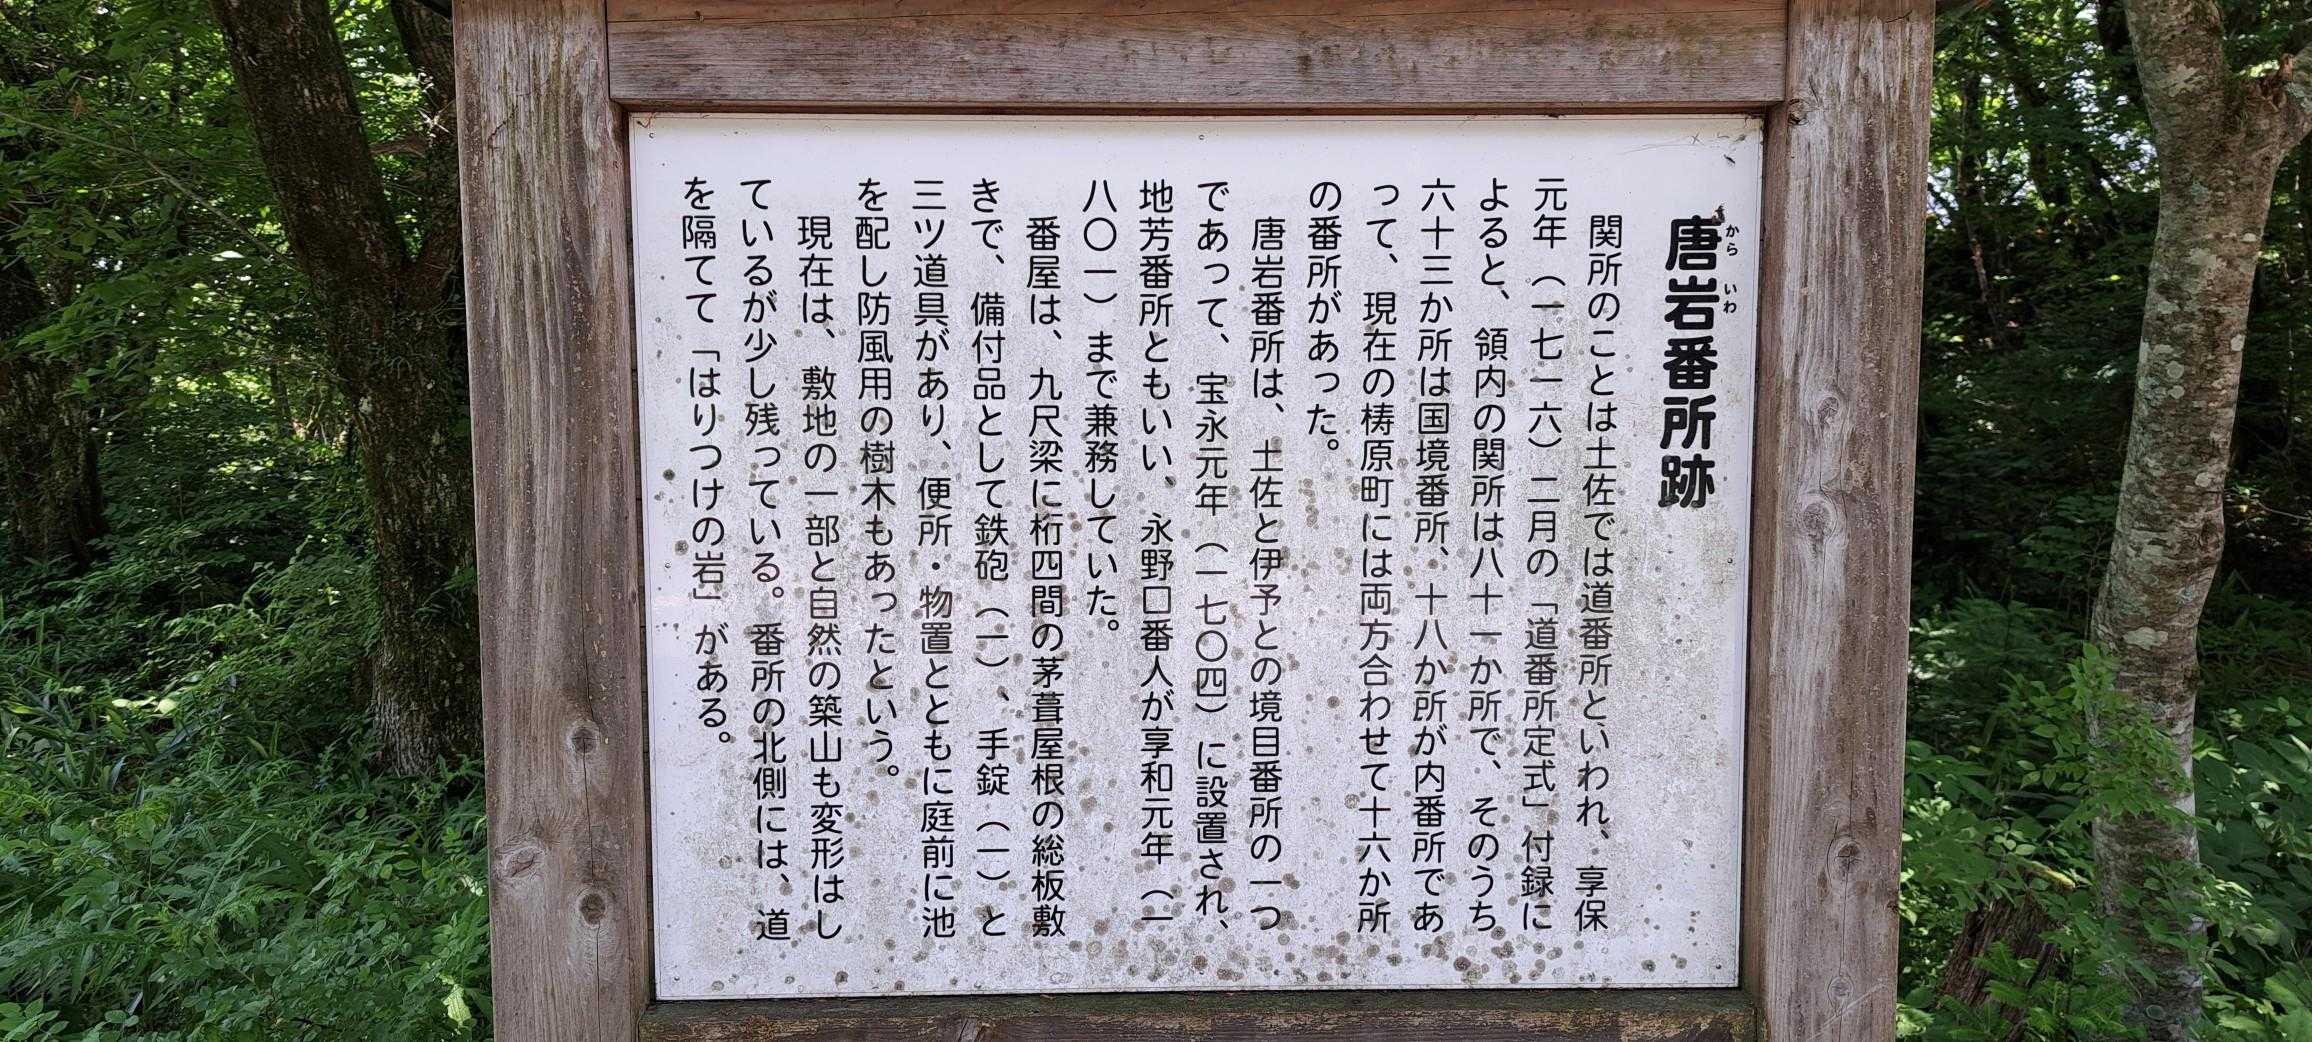 唐岩番所跡
からいわ
関所のことは土佐では道番所といわれ、享保
元年（一七一六）二月の「道番所定式」付録に
よると、領内の関所は八十一か所で、そのうち
六十三か所は国境番所、十八か所が内番所であ
って、現在の梼原町には両方合わせて十六か所
の番所があった。
唐岩番所は、土佐と伊予との境目番所の一つ
であって、宝永元年（一七〇四）に設置され、
地芳番所ともいい、永野口番人が享和元年（一
八〇一）まで兼務していた。
番屋は、九尺梁に桁四間の茅葺屋根の総板敷
きで、備付品として鉄砲（一）、手錠（一）と
三ツ道具があり、便所・物置とともに庭前に池
を配し防風用の樹木もあったという。
現在は、敷地の一部と自然の築山も変形はし
ているが少し残っている。番所の北側には、道
を隔てて「はりつけの岩」がある。